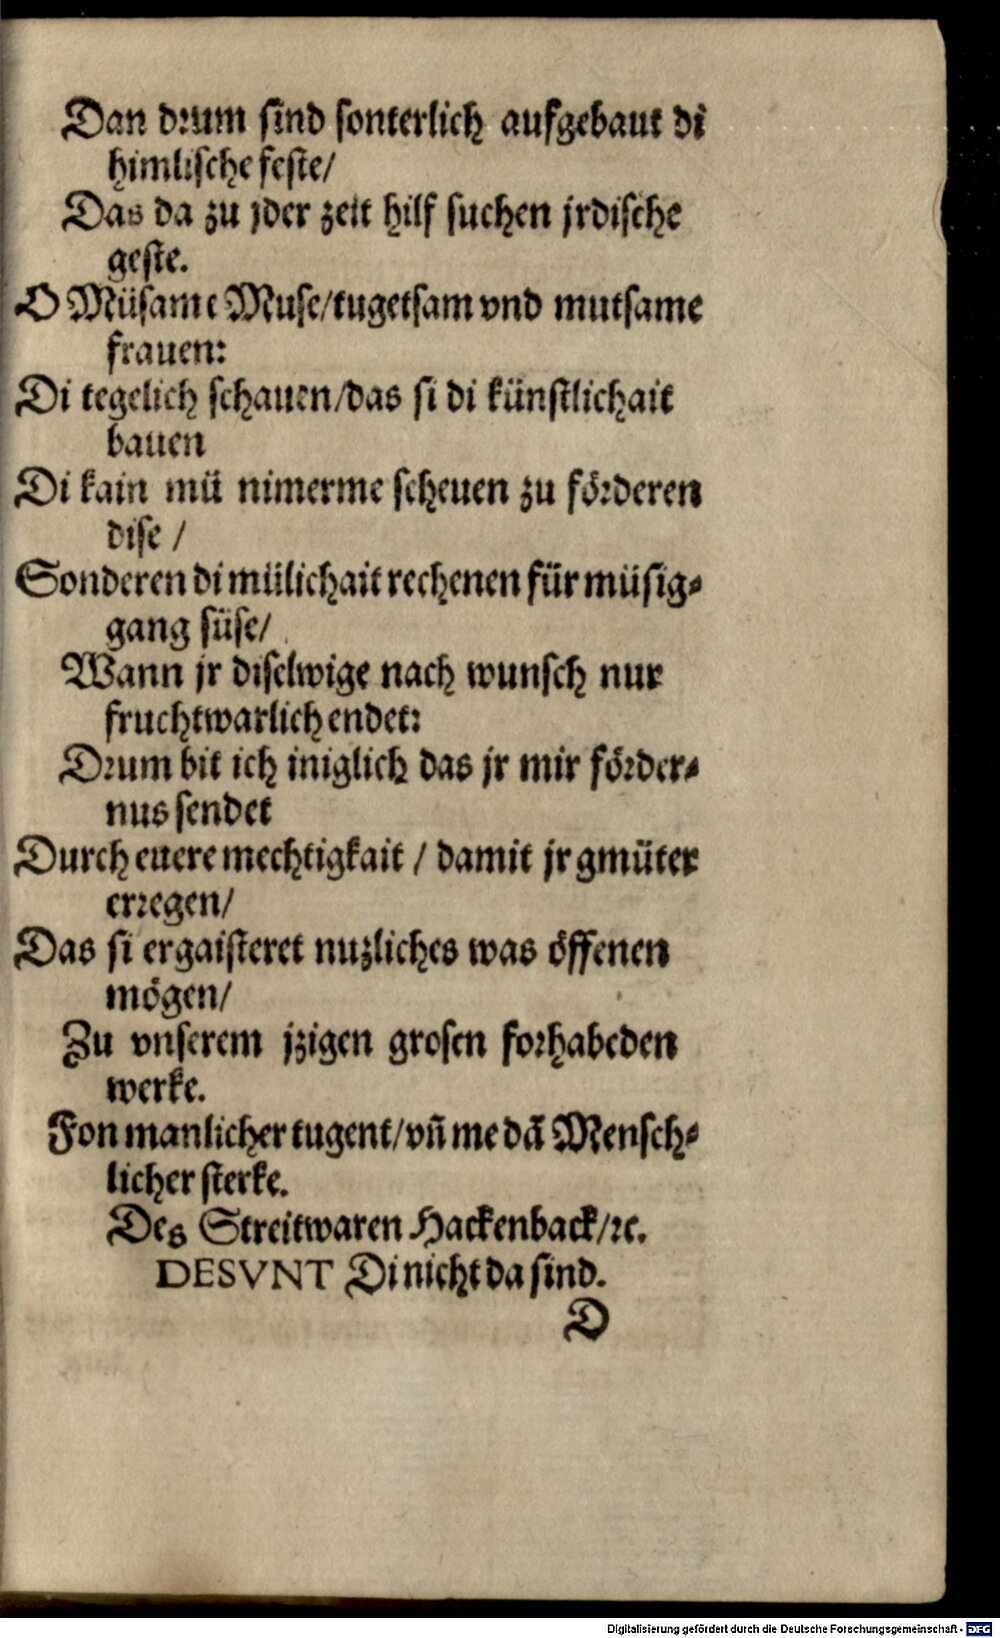 Dan drum sind sonterlich aufgebaut di
himlische feste/
Das da zu jder zeit hilf suchen jrdische
geste.
O Müsame Muse/tugetsam vnd mutsame
frauen:
Di tegelich schauen/das si di künstlichait
bauen
Di kain mü nimerme scheuen zu förderen
dise /
Sonderen di mülichait rechenen für müsig-
gang süse/
Wann jr diselwige nach wunsch nur
fruchtwarlich endet:
Drum bit ich iniglich das jr mir förder-
nus sendet
Durch euere mechtigkait / damit jr gmüter
erregen/
Das si ergaisteret nuzliches was öffenen
mögen/
Zu vnserem jzigen grosen forhabeden
werke.
Fon manlicher tugent/vñ me dã Mensch-
licher sterke.
Des Streitwaren Hackenback/ꝛc.
DESVNT Di nicht da sind.
D
Digitalisierung gefördert durch die Deutsche Forschungsgemeinschaft - DFG